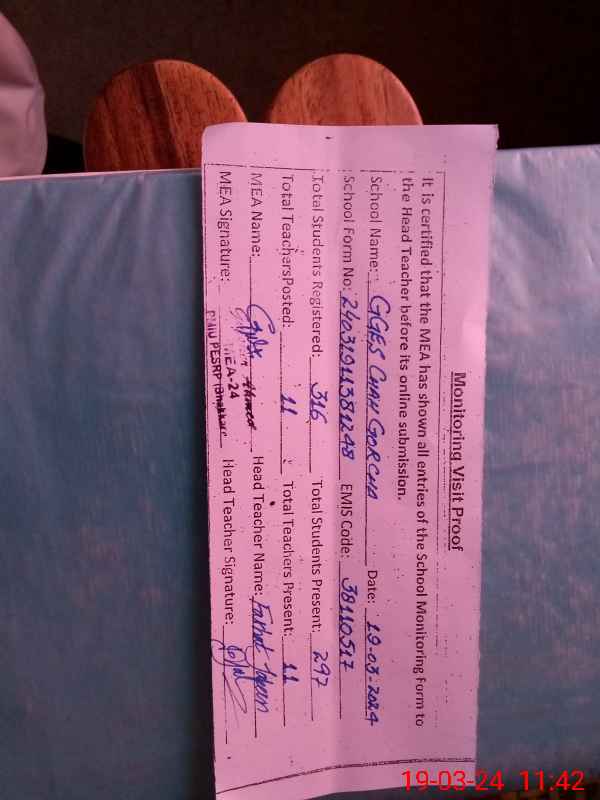 Monitoring Visit Proof
It is certified that the MEA has shown all entries of the School Monitoring Form to
the Head Teacher before its online submission.
School Name: GGES CHAH GORCHA Date: 19-03-2024
School Form No: 24031911381248 EMIS Code: 38110517
Total Students Registered: 316 Total Students Present: 297
Total TeachersPosted: 11 Total Teachers Present: 11
MEA Name: Ahmed Head Teacher Name: Farhat
MEA Signature: MEA-24 Head Teacher Signature:
PMIU PESRP (Bhakkar
19-03-24 11:42